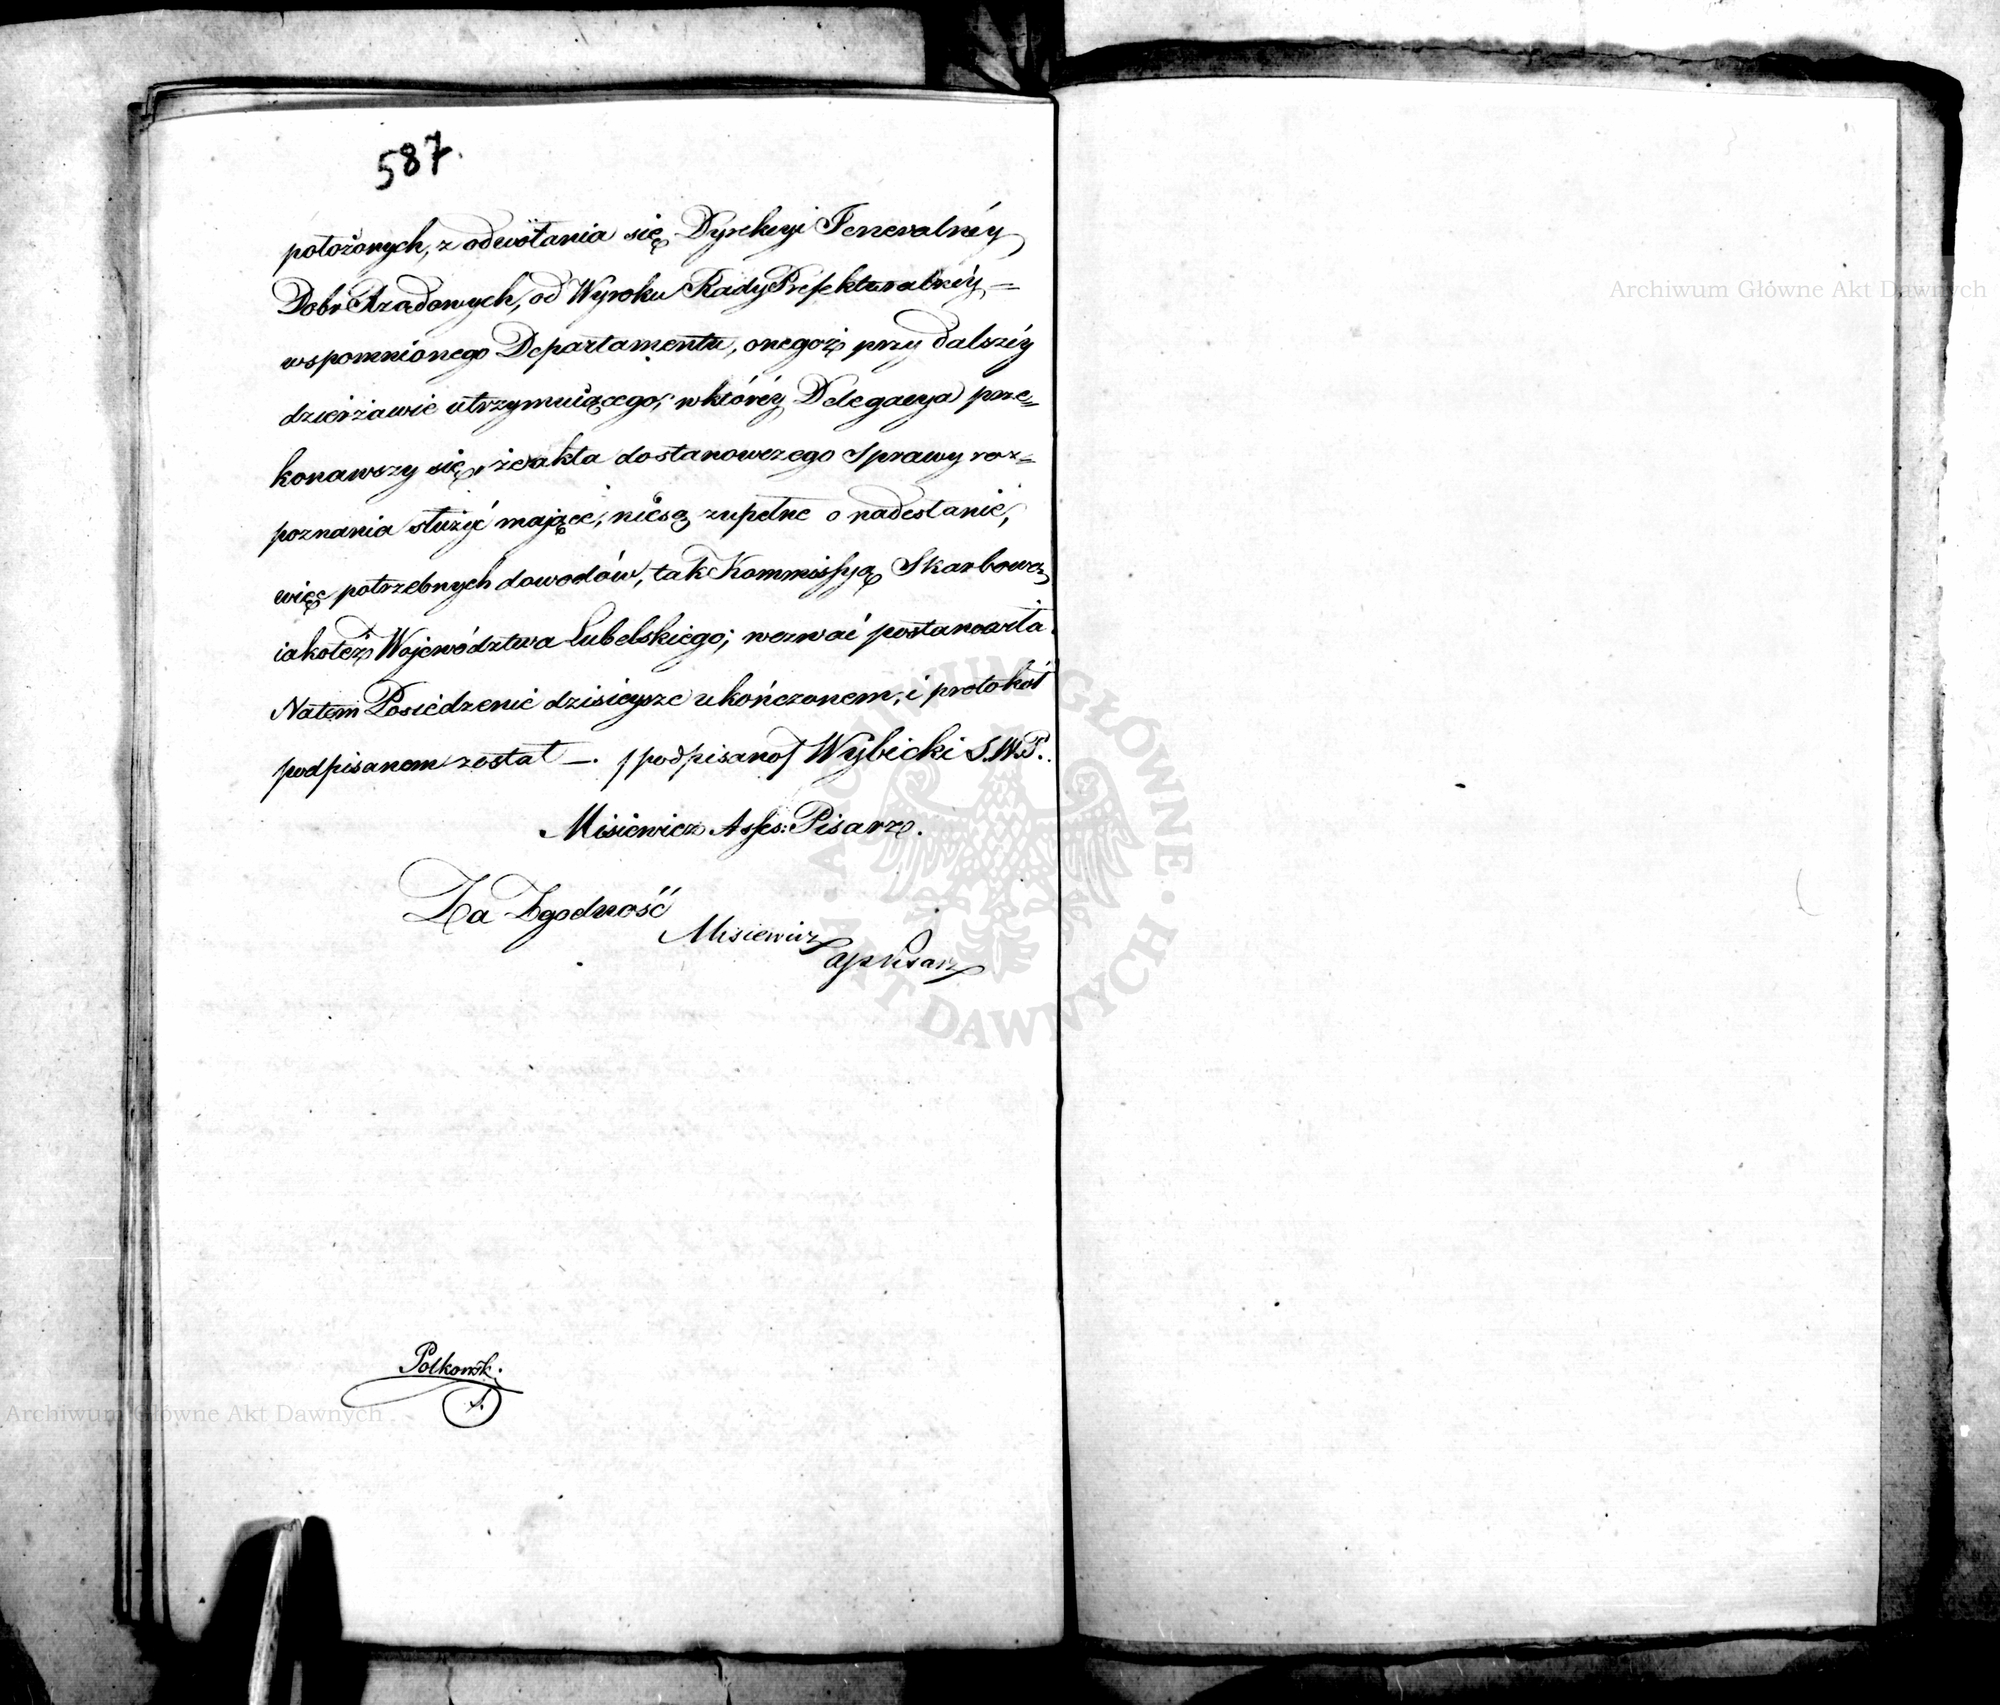 587.
położonych, z odwołania się Dyrekcyi Jeneralnéy
Dobr Rządowych, od Wyroku Rady Prefekturalnéy –
wspomnionego Departamentu, onegoż przy dalszéy
dzierżawie utrzymuiącego; w któréy Delegacya prze=
konawszy się, że akta do stanowczego Sprawy roz=
poznania służyć mające, nie są zupełne o nadesłanie,
więc potrzebnych dowodów, tak Kommissyą Skarbową
iakoteż Województwa Lubelskiego; wezwać postanowiła.
Na tem Posiedzenie dzisieysze ukończonem, i protokół
podpisanem został –. /podpisano/ Wybicki S.W.P.
Misiewicz Asses: Pisarz.
Za Zgodność
Misiewicz
Pisarz
Polkowsk.
Archiwum Główne Akt Dawnych
Archiwum Główne Akt Dawnych
ARCHIWUM GŁÓWNE AKT DAWNYCH